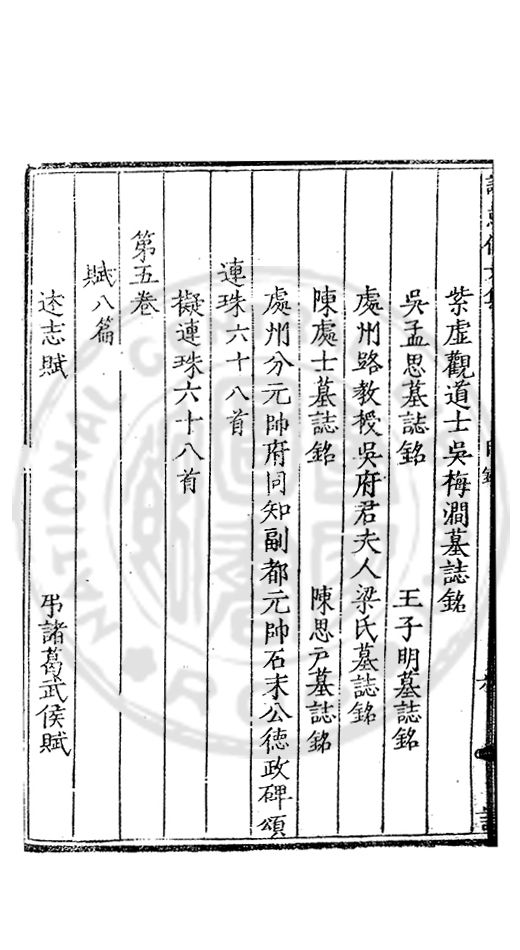 紫虛觀道士吳梅澗墓誌銘
吳孟思墓誌銘 王子明墓誌銘
處州路教授吳府君夫人梁氏墓誌銘
陳處士墓誌銘 陳思戸墓誌銘
處州分元帥府同知副都元帥石末公德政碑頌
連珠六十八首
擬連珠六十八首
第五卷
賦八篇
述志賦 弔諸葛武侯賦